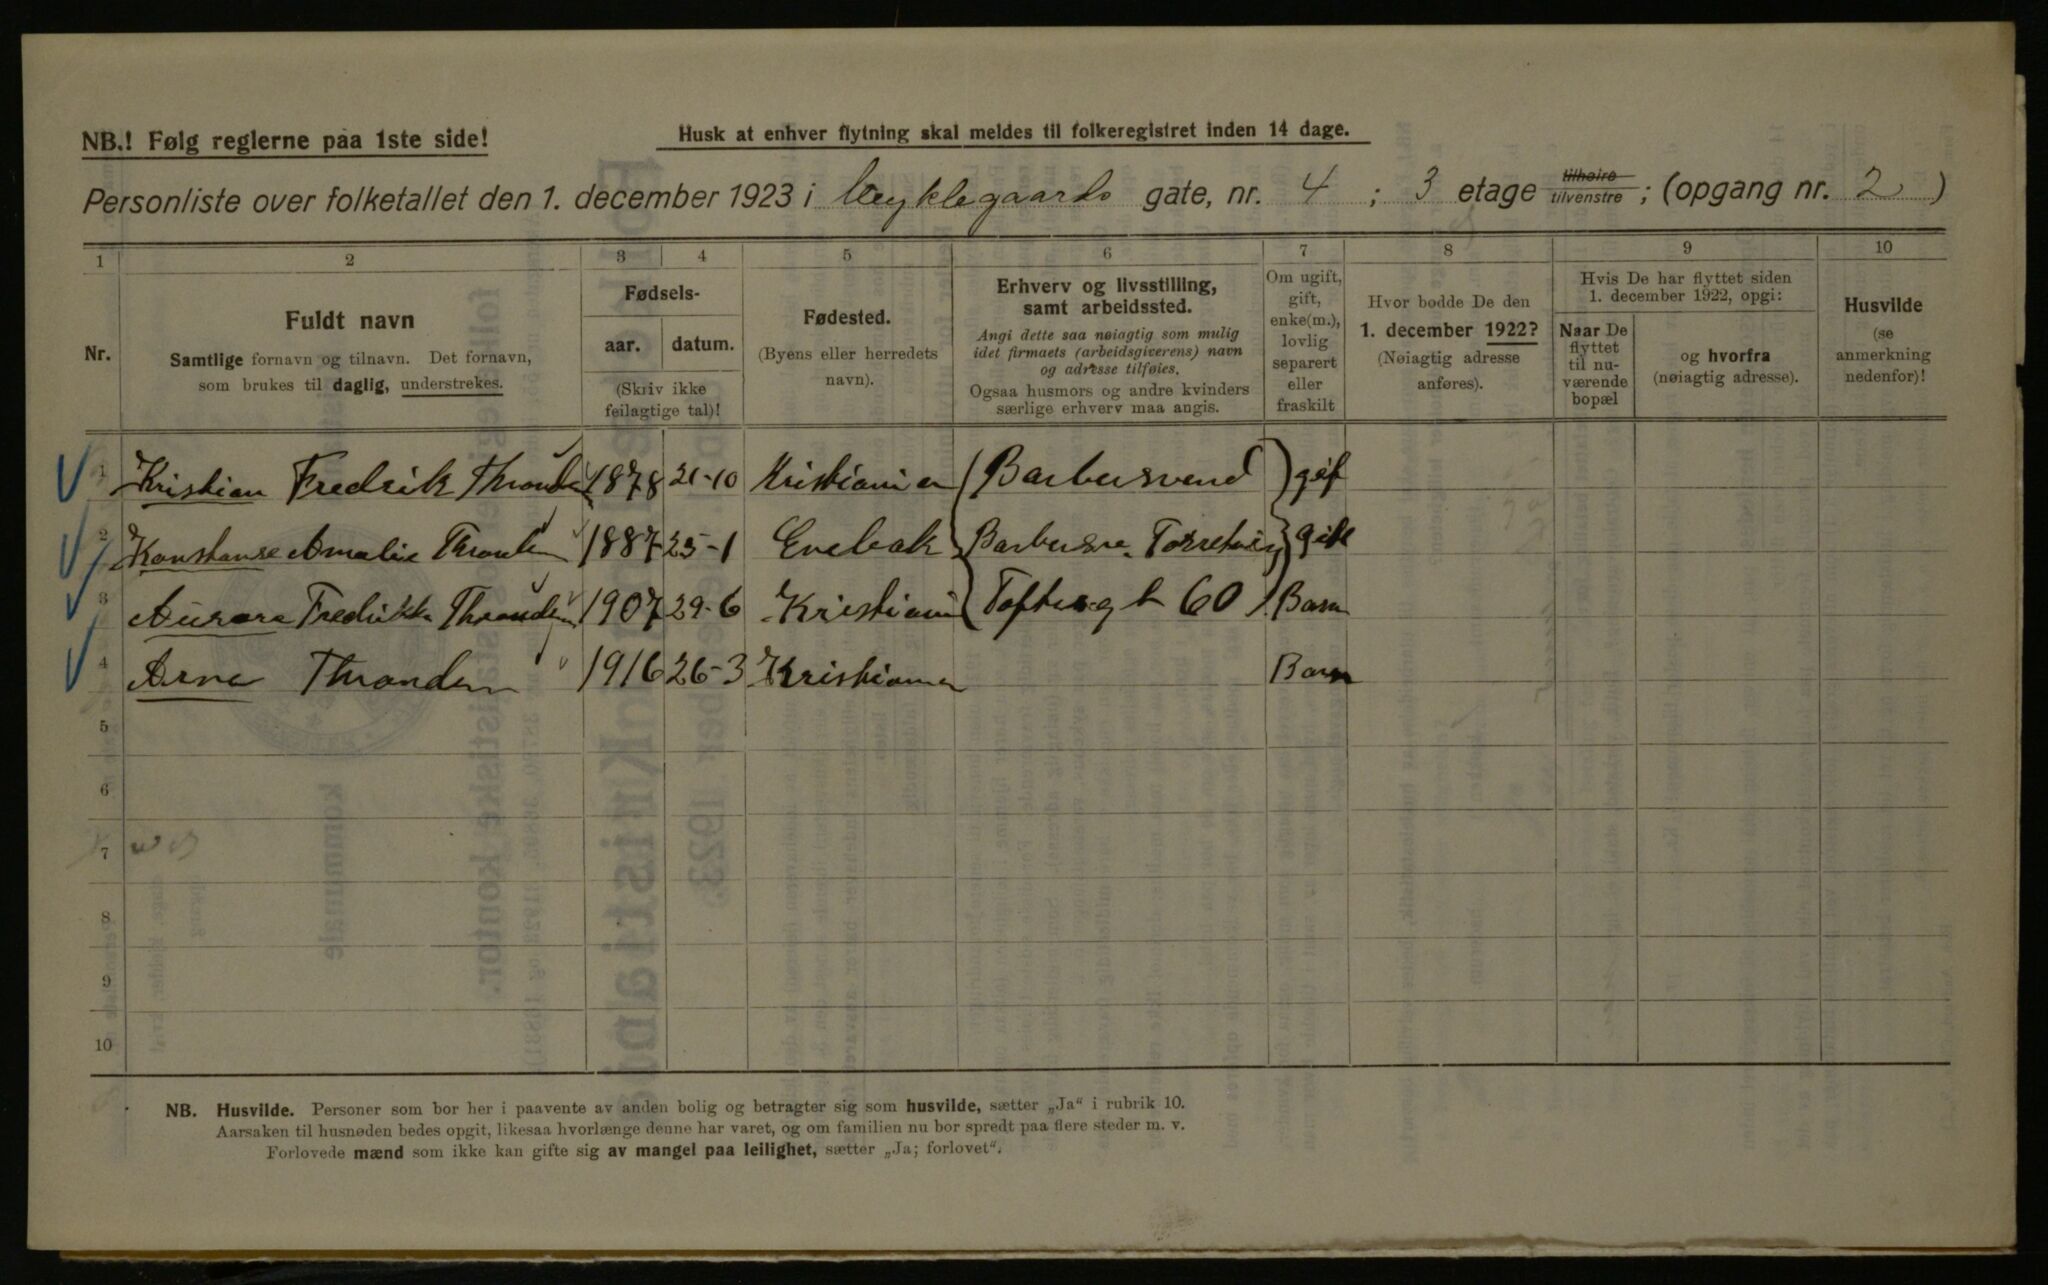 NB.! Følg reglerne paa 1ste side!
Husk at enhver flytning skal meldes til folkeregistret inden 14 dage.
Personliste over folketallet den 1. december 1923 i gate, nr. 4 ; 3 etage tilhøire tilvenstre ; (opgang nr. 2 )
1 2 3 4 5 6 7 8 9 10
Nr.
Fuldt navn
Samtlige fornavn og tilnavn. Det fornavn,
som brukes til daglig, understrekes.
Fødsels-
aar. datum.
(Skriv ikke
feilagtige tal)!
Fødested.
(Byens eller herredets
navn).
Erhverv og livsstilling,
samt arbeidssted.
Angi dette saa nøiagtig som mulig
idet firmaets (arbeidsgiverens) navn
og adresse tilføies.
Ogsaa husmors og andre kvinders
særlige erhverv maa angis.
Om ugift,
gift,
enke(m.),
lovlig
separert
eller
fraskilt
Hvor bodde De den
1. december 1922?
(Nøiagtig adresse
anføres).
Hvis De har flyttet siden
1. december 1922, opgi:
Naar De
flyttet
til nu-
værende
bopæl
og hvorfra
(nøiagtig adresse).
Husvilde
(se
anmerkning
nedenfor)!
1 Kristian Fredrik 1878 21-10 Kristiania Barbersvend gift
2 Konstanse Amalie 1887 25-1 Enebak gift
3 Aurora Fredrikke 1907 29-6 60 Barn
4 Arne Throndsen 1916 26-3 Kristiania Barn
5
6
7
8
9
10
NB. Husvilde. Personer som bor her i paavente av anden bolig og betragter sig som husvilde, sætter „Ja“ i rubrik 10.
Aarsaken til husnøden bedes opgit, likesaa hvorlænge denne har varet, og om familien nu bor spredt paa flere steder m. v.
Forlovede mænd som ikke kan gifte sig av mangel paa leilighet, sætter „Ja; forlovet“.